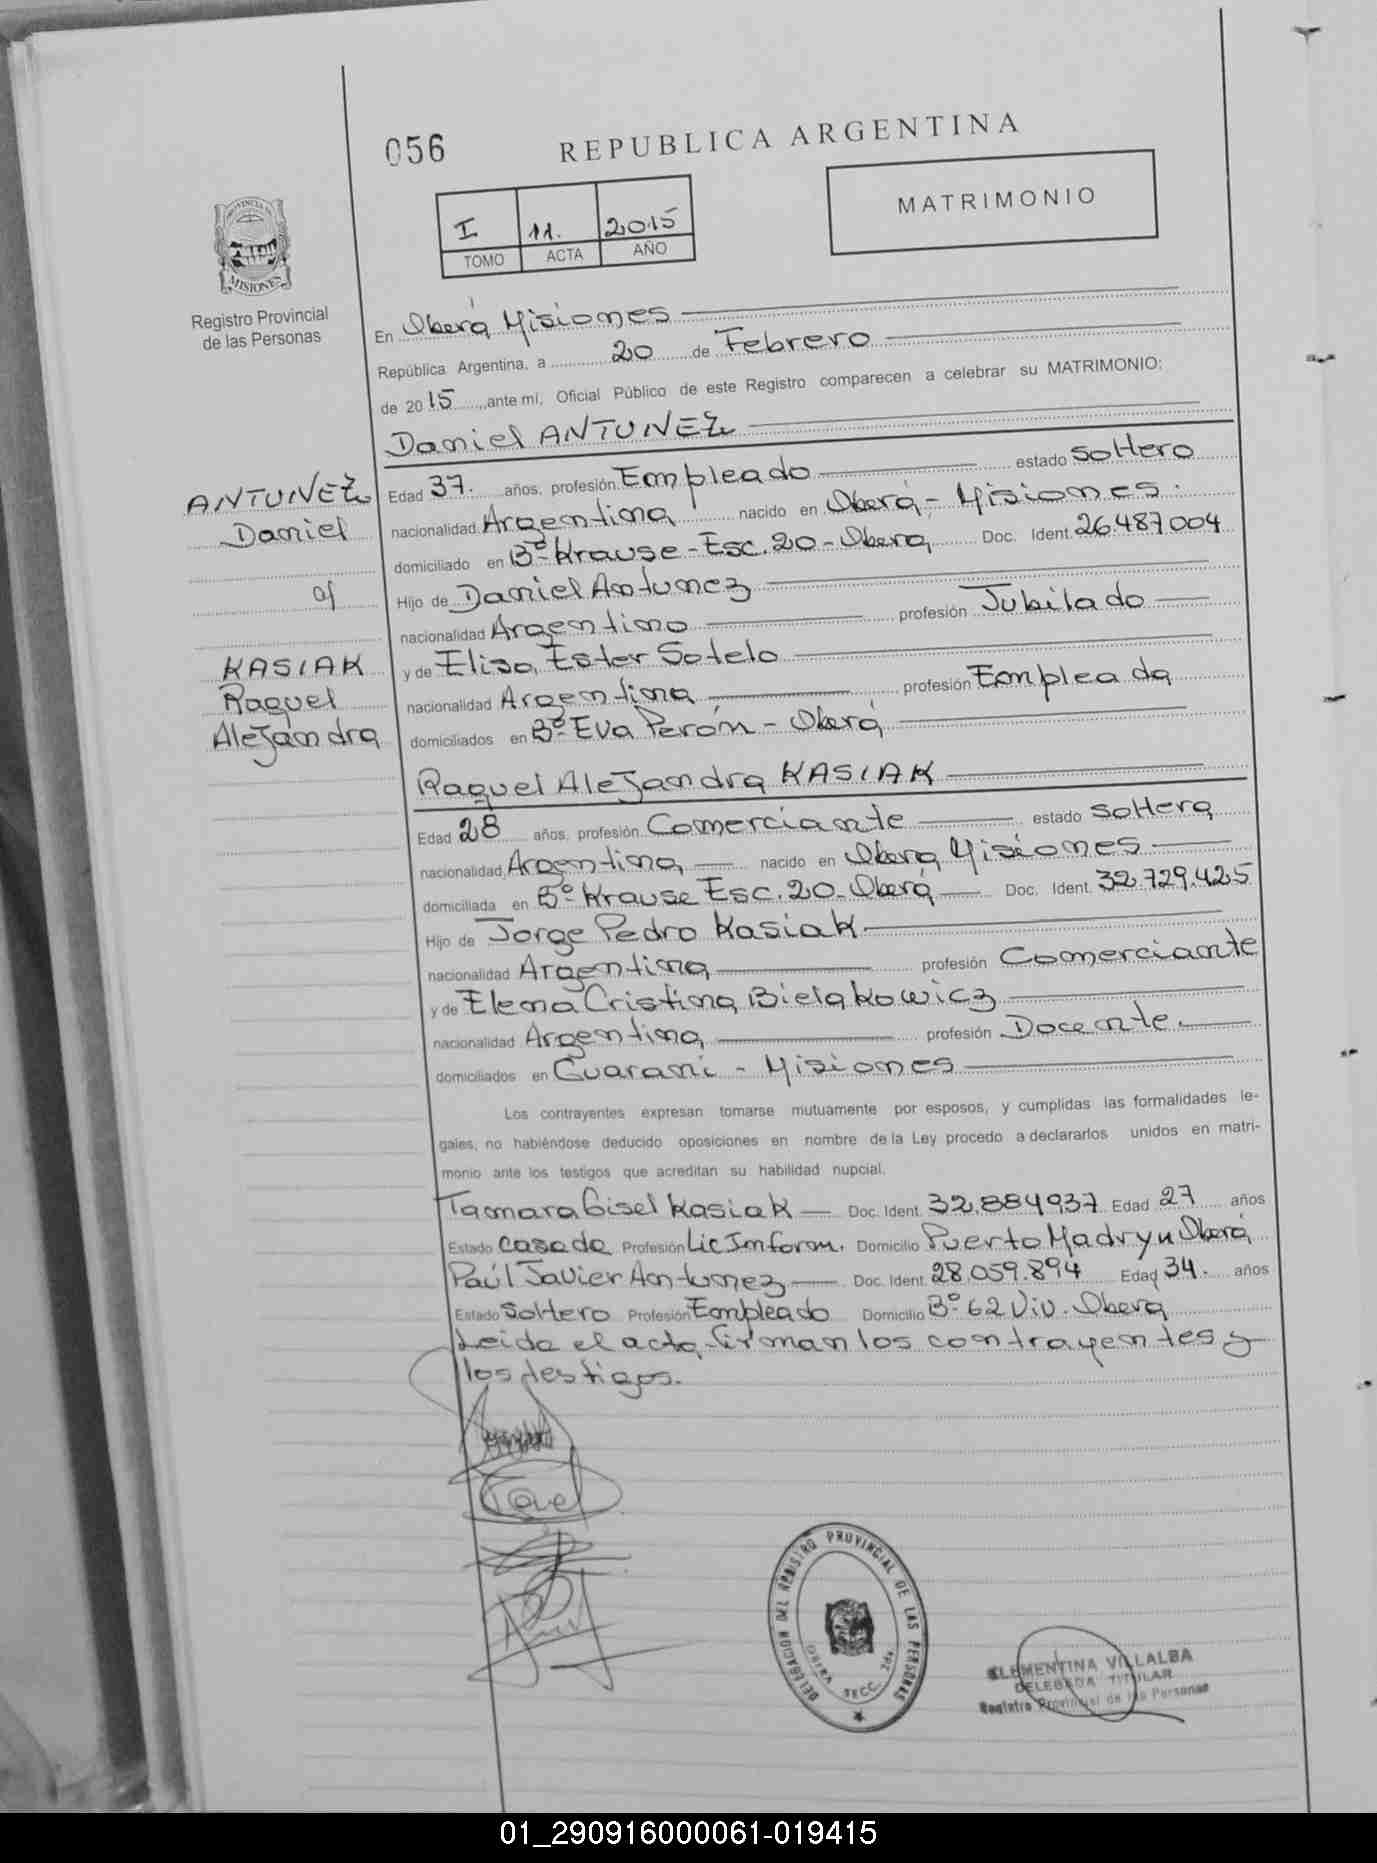 056
REPUBLICA ARGENTINA
MATRIMONIO
I 11. 2015
TOMO ACTA AÑO
PROVINCIA DE
MISIONES
Registro Provincial
de las Personas
En Oberá Misiones
República Argentina, a 20 de Febrero
de 2015, ante mí, Oficial Público de este Registro comparecen a celebrar su MATRIMONIO:
Daniel ANTUNEZ
ANTUNEZ
Daniel
c/
KASIAK
Raquel
Alejandra
Edad 37. años, profesión Empleado estado Soltero
nacionalidad Argentina nacido en Oberá - Misiones.
domiciliado en Bº Krause - Esc. 20 - Oberá Doc. Ident. 26.487.004
Hijo de Daniel Antunez
nacionalidad Argentino profesión Jubilado
y de Elisa Ester Sotelo
nacionalidad Argentina profesión Empleada
domiciliados en Bº Eva Perón - Oberá
Raquel Alejandra KASIAK
Edad 28 años, profesión Comerciante estado Soltera
nacionalidad Argentina nacido en Oberá Misiones
domiciliada en Bº Krause Esc. 20 - Oberá Doc. Ident. 32.729.425
Hijo de Jorge Pedro Kasiak
nacionalidad Argentina profesión Comerciante
y de Elena Cristina Bielakowicz
nacionalidad Argentina profesión Docente.
domiciliados en Guarani - Misiones
Los contrayentes expresan tomarse mutuamente por esposos, y cumplidas las formalidades le-
gales, no habiéndose deducido oposiciones en nombre de la Ley procedo a declararlos unidos en matri-
monio ante los testigos que acreditan su habilidad nupcial.
Tamara Gisel Kasiak Doc. Ident. 32.884937 Edad 27 años
Estado casada Profesión Lic Inform. Domicilio Puerto Madryn Oberá
Paúl Javier Antunez Doc. Ident. 28.059.894 Edad 34. años
Estado Soltero Profesión Empleado Domicilio Bº 62 Viv. Oberá
Leida el acta firman los contrayentes y
los testigos.
DELEGACION DEL REGISTRO PROVINCIAL DE LAS PERSONAS
OBERA SECC. 2da
CLEMENTINA VILLALBA
DELEGADA TITULAR
Registro Provincial de las Personas
01_290916000061-019415